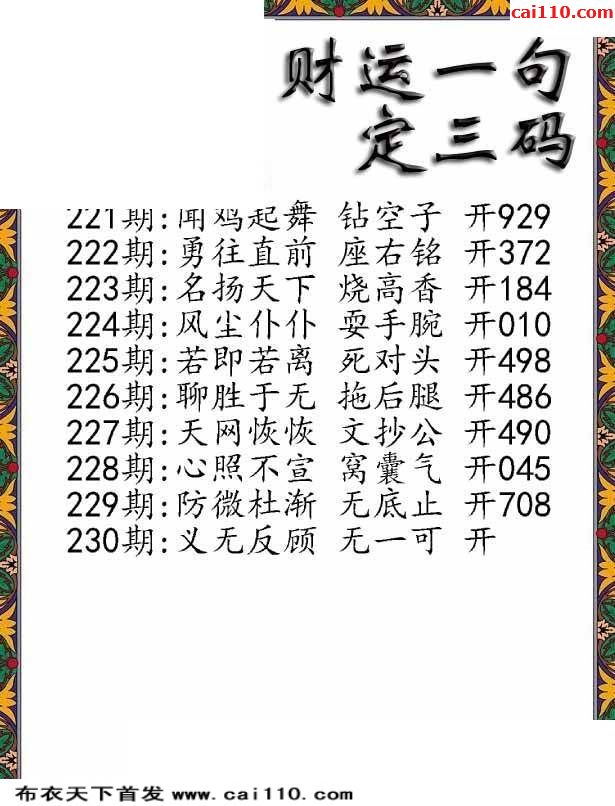 cai110.com
财运一句
定三码
221期:闻鸡起舞 钻空子 开929
222期:勇往直前 座右铭 开372
223期:名扬天下 烧高香 开184
224期:风尘仆仆 耍手腕 开010
225期:若即若离 死对头 开498
226期:聊胜于无 拖后腿 开486
227期:天网恢恢 文抄公 开490
228期:心照不宣 窝囊气 开045
229期:防微杜渐 无底止 开708
230期:义无反顾 无一可 开
布衣天下首发 www.cai110.com